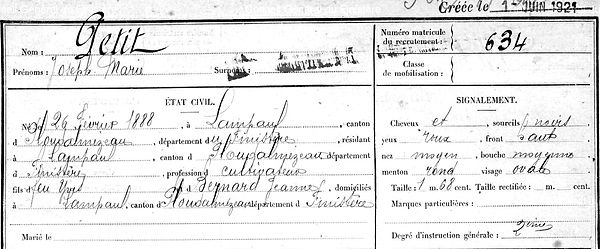 Créée le 1 JUIN 1921
Petit
Nom :
Prénoms : Joseph Marie Surnoms :
Numéro matricule du recrutement : 634
Classe de mobilisation :
ÉTAT CIVIL.
Né le 26 février 1888, à Lampaul, canton
d Ploudalmézeau, département du Finistère, résidant
à Lampaul, canton d Ploudalmézeau, département
d Finistère, profession d cultivateur
fils d feu Yves et d Bernard Jeanne, domiciliés
à Lampaul, canton d Ploudalmézeau, département d Finistère
Marié le
SIGNALEMENT.
Cheveux et sourcils noirs
yeux roux, front haut
nez moyen, bouche moyenne
menton rond visage ovale
Taille : 1 m. 68 cent. Taille rectifiée : m. cent.
Marques particulières :
Degré d'instruction générale : 2ème